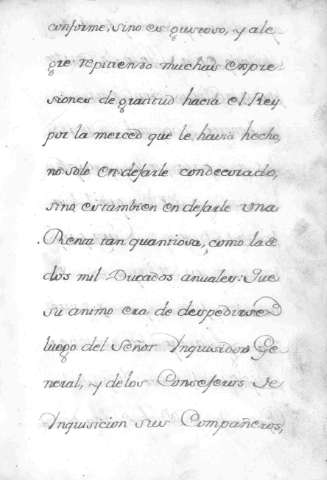 conforme, sino es gustoso, y ale
gre repitiendo muchas expre-
siones de gratitud hacia el Rey
por la merced que le havia hecho,
no solo en dejarle condecorado,
sino es tambien en dejarle una
Renta tan quantiosa, como la de
dos mil Ducados anuales: Que
su animo era de despedirse
luego del Señor Inquisidor Ge
neral, y de los Consejeros de
Inquisicion sus Compañeros,